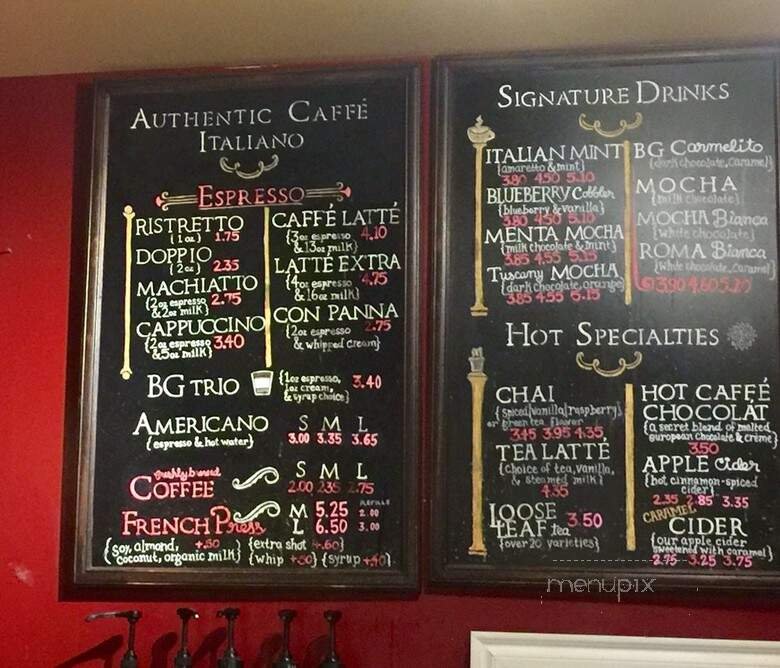 AUTHENTIC CAFFÉ
ITALIANO
ESPRESSO
RISTRETTO
{1oz} 1.75
DOPPIO
{2oz} 2.35
MACHIATTO
{2oz espresso 2.75
& 2oz milk}
CAPPUCCINO
{2oz espresso 3.40
& 5oz milk}
CAFFÉ LATTÉ
{3oz espresso 4.10
& 13oz milk}
LATTÉ EXTRA
{4oz espresso 4.75
& 16oz milk}
CON PANNA
{2oz espresso 2.75
& whipped cream}
BG TRIO {1oz espresso, 3.40
1oz cream,
& syrup choice}
AMERICANO S M L
{espresso & hot water} 3.00 3.35 3.65
freshly brewed S M L
COFFEE 2.00 2.35 2.75
REFILLS
FRENCH Press M 5.25 2.00
L 6.50 3.00
{soy, almond, +.50
coconut, organic milk}
{extra shot +.60}
{whip +.50} {syrup +.40}
SIGNATURE DRINKS
ITALIAN MINT
{amaretto & mint}
3.80 4.50 5.10
BLUEBERRY Cobbler
{blueberry & vanilla}
3.80 4.50 5.10
MENTA MOCHA
{milk chocolate & mint}
3.85 4.55 5.15
Tuscany MOCHA
{dark chocolate, orange}
3.85 4.55 5.15
BG Carmelito
{dark chocolate, caramel}
MOCHA
{milk chocolate}
MOCHA Bianca
{white chocolate}
ROMA Bianca
{white chocolate, caramel}
3.90 4.60 5.20
HOT SPECIALTIES
CHAI
{spiced/vanilla/raspberry}
or green tea flavor
3.45 3.95 4.35
TEA LATTÉ
{choice of tea, vanilla,
& steamed milk}
4.35
LOOSE
LEAF tea 3.50
{over 20 varieties}
HOT CAFFÉ
CHOCOLAT
{a secret blend of malted
european chocolate & crème}
3.50
APPLE Cider
{hot cinnamon-spiced
cider}
2.35 2.85 3.35
CARAMEL
CIDER
{our apple cider
sweetened with caramel}
2.75 3.25 3.75
menupix